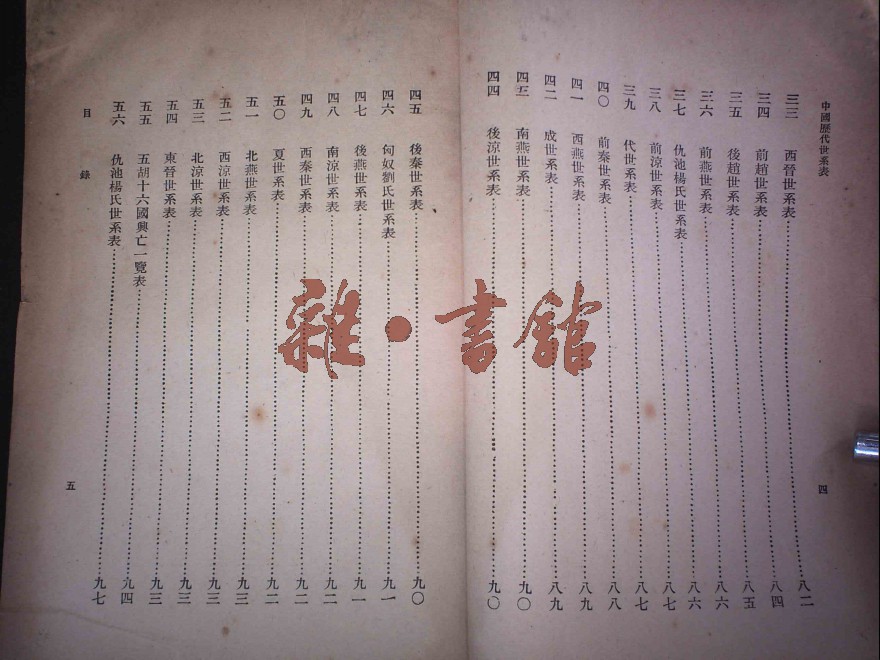 中國歷代世系表
四
三三 西晉世系表……八二
三四 前趙世系表……八四
三五 後趙世系表……八五
三六 前燕世系表……八六
三七 仇池楊氏世系表……八六
三八 前涼世系表……八七
三九 代世系表……八七
四〇 前秦世系表……八八
四一 西燕世系表……八九
四二 成世系表……八九
四三 南燕世系表……九〇
四四 後涼世系表……九〇
四五 後秦世系表……九〇
四六 匈奴劉氏世系表……九一
四七 後燕世系表……九一
四八 南涼世系表……九二
四九 西秦世系表……九二
五〇 夏世系表……九二
五一 北燕世系表……九三
五二 西涼世系表……九三
五三 北涼世系表……九三
五四 東晉世系表……九三
五五 五胡十六國興亡一覽表……九四
五六 仇池楊氏世系表……九七
目錄
五
雜·書館